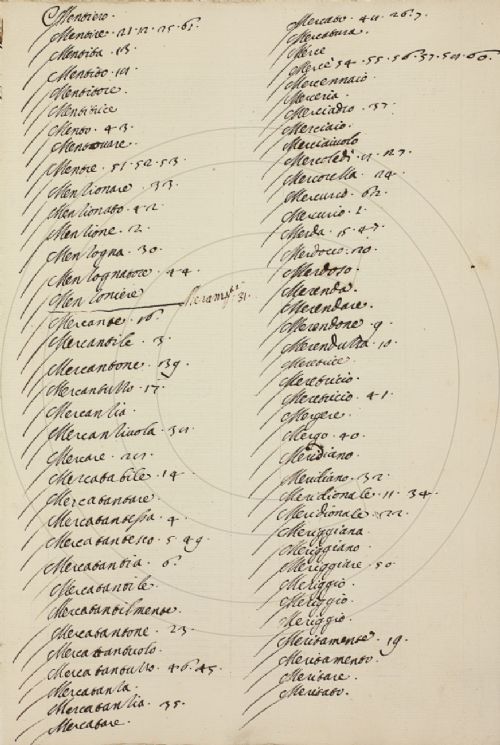 Mentiero.
Mentire. 21. 12. 25. 6.
Mentita. 18.
Mentito. 19.
Mentitore.
Mentitrice
Mento. 43.
Mentovare.
Mentre. 51. 52. 53.
Menzionare. 33.
Menzionato. 42.
Menzione. 2.
Menzogna. 30.
Menzognatore. 44.
Menzoniere
31.
Mercante. 16.
Mercantile. 3.
Mercantone. 139.
Mercantuzzo. 17.
Mercanzia.
Mercanziuola. 39.
Mercare.
Mercatabile. 14.
Mercatantare.
Mercatantessa. 4.
Mercatantesco. 5. 49.
Mercatantia. 6.
Mercatantile.
Mercatantilmente.
Mercatantone. 23.
Mercatantuolo.
Mercatantuzzo. 46. 45.
Mercatanza.
Mercatanzia. 35.
Mercatare.
Mercato. 44. 26. 7.
Mercatura.
Merce
Mercé 54. 55. 56. 57. 59. 60.
Mercennaio
Merceria.
Merciadro. 37.
Merciaio.
Merciaiuolo
Mercoledì. 11. 27.
Mercorella. 24.
Mercurio. 62.
Mercurio. 1.
Merda. 15. 47.
Merdocco. 20.
Merdoso.
Merenda.
Merendare.
Merendone. 9.
Merenduzza. 10.
Meretrice
Meretricio.
Meretricio. 41.
Mergere.
Mergo. 40.
Meridiano.
Meridiano. 32.
Meridionale. 11. 34.
Meridionale. 22.
Meriggiana.
Meriggiano.
Meriggiare. 50
Meriggio.
Meriggio.
Meriggio.
Meritamente. 19.
Meritamento.
Meritare.
Meritato.